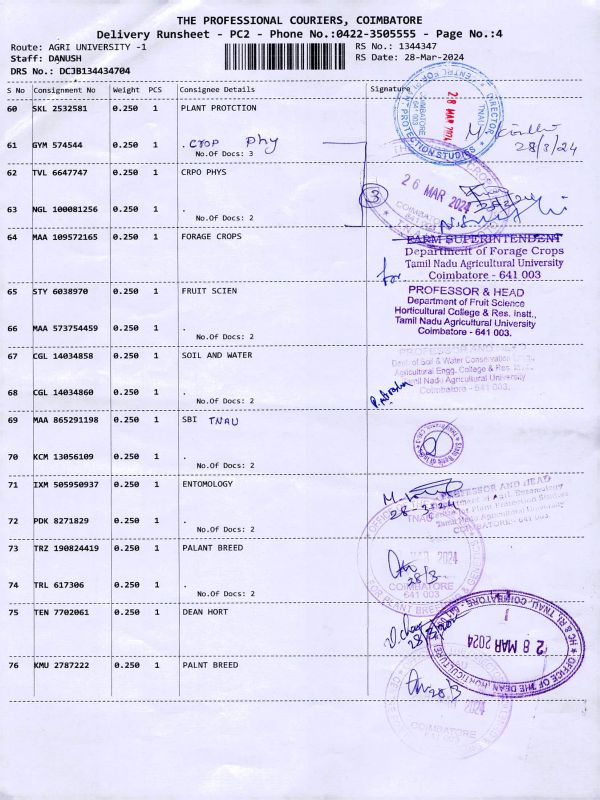 THE PROFESSIONAL COURIERS, COIMBATORE
Delivery Runsheet - PC2 - Phone No.:0422-3505555 - Page No.:4
Route: AGRI UNIVERSITY -1
Staff: DANUSH
DRS No.: DCJB134434704
RS No.: 1344347
RS Date: 28-Mar-2024
S No Consignment No Weight PCS Consignee Details Signature
60 SKL 2532581 0.250 1 PLANT PROTCTION
DIRECTOR
TNAU
28 MAR 2024
COIMBATORE
641 003
PROTECTION STUDIES
28/3/24
61 GYM 574544 0.250 1 . crop Phy
No.Of Docs: 3
62 TVL 6647747 0.250 1 CRPO PHYS
3
26 MAR 2024
COIMBATORE
63 NGL 100081256 0.250 1 .
No.Of Docs: 2
64 MAA 109572165 0.250 1 FORAGE CROPS
FARM SUPERINTENDENT
Department of Forage Crops
Tamil Nadu Agricultural University
Coimbatore - 641 003
for
65 STY 6038970 0.250 1 FRUIT SCIEN
PROFESSOR & HEAD
Department of Fruit Science
Horticultural College & Res. Instt.,
Tamil Nadu Agricultural University
Coimbatore - 641 003.
66 MAA 573754459 0.250 1 .
No.Of Docs: 2
67 CGL 14034858 0.250 1 SOIL AND WATER
Dept. of Soil & Water Conservation
Agricultural Engg. College & Res.
Tamil Nadu Agricultural University
Coimbatore - 641 003.
68 CGL 14034860 0.250 1 .
No.Of Docs: 2
69 MAA 865291198 0.250 1 SBI TNAU
70 KCM 13056109 0.250 1 .
No.Of Docs: 2
71 IXM 505950937 0.250 1 ENTOMOLOGY
PROFESSOR AND HEAD
Department of Agrl. Entomology
Centre for Plant Protection Studies
Tamil Nadu Agricultural University
COIMBATORE - 641 003
28-3-24
72 PDK 8271829 0.250 1 .
No.Of Docs: 2
73 TRZ 190824419 0.250 1 PALANT BREED
TNAU
MAR 2024
COIMBATORE
641 003
28/3
74 TRL 617306 0.250 1 .
No.Of Docs: 2
75 TEN 7702061 0.250 1 DEAN HORT
28 MAR 2024
OFFICE OF THE DEAN (HORTICULTURE)
HC & RI, TNAU, COIMBATORE
76 KMU 2787222 0.250 1 PALNT BREED
28/3
2024
COIMBATORE